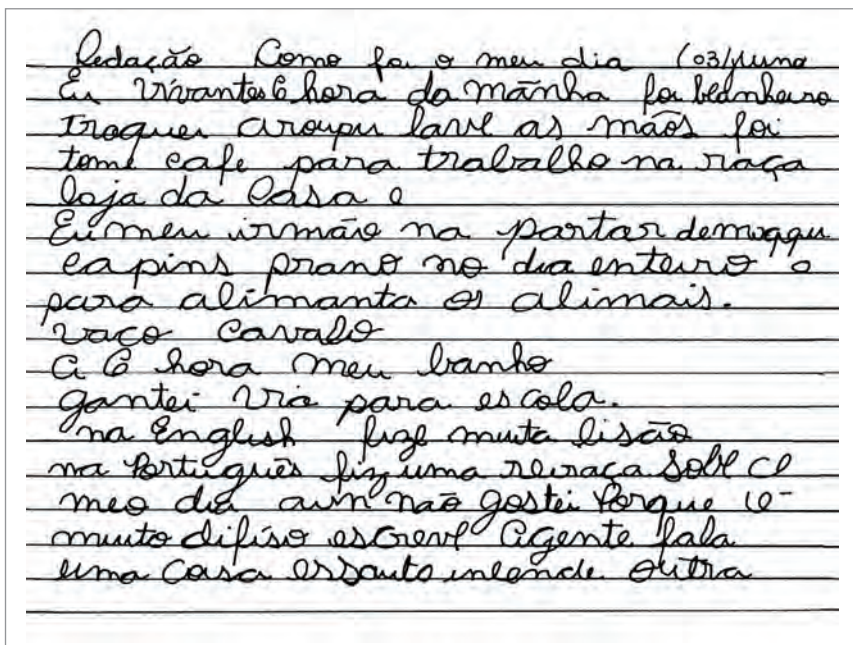 Redação Como foi o meu dia (03/Juno
Eu 6 hora da mãnha foi
Troquei lave as mãos foi
tome cafe para trabalho na raça
loja da Casa e
Eu meu irmão na partar
capins prano no dia enteiro o
para alimanta os alimais.
vaco Cavalo
a 6 hora meu banho
gantei via para escola.
na English fize muta lisão
na Português fiz uma Sobe
meo dia não gostei Porque
muuto difiso escreve agente fala
uma Casa outra